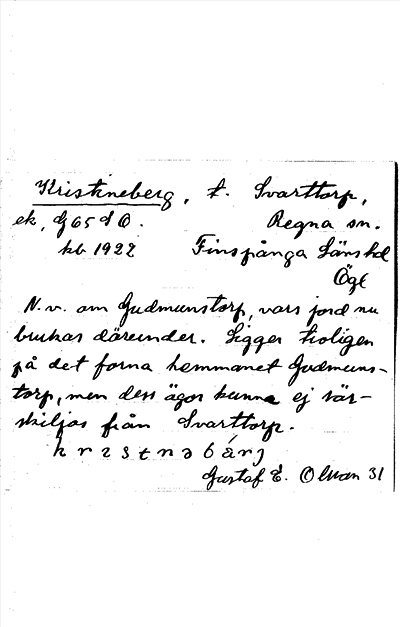 Kristineberg, t. Svarttorp,
ek. G65dO. Regna sn.
kb 1922 Finspånga Länshd
Ögl
N.v. om Gudmunstorp, vars jord nu
brukas därunder. Ligger troligen
på det forna hemmanet Gudmuns-
torp, men dess ägor kunna ej sär-
skiljas från Svarttorp.
Gustaf E. Olsson 31